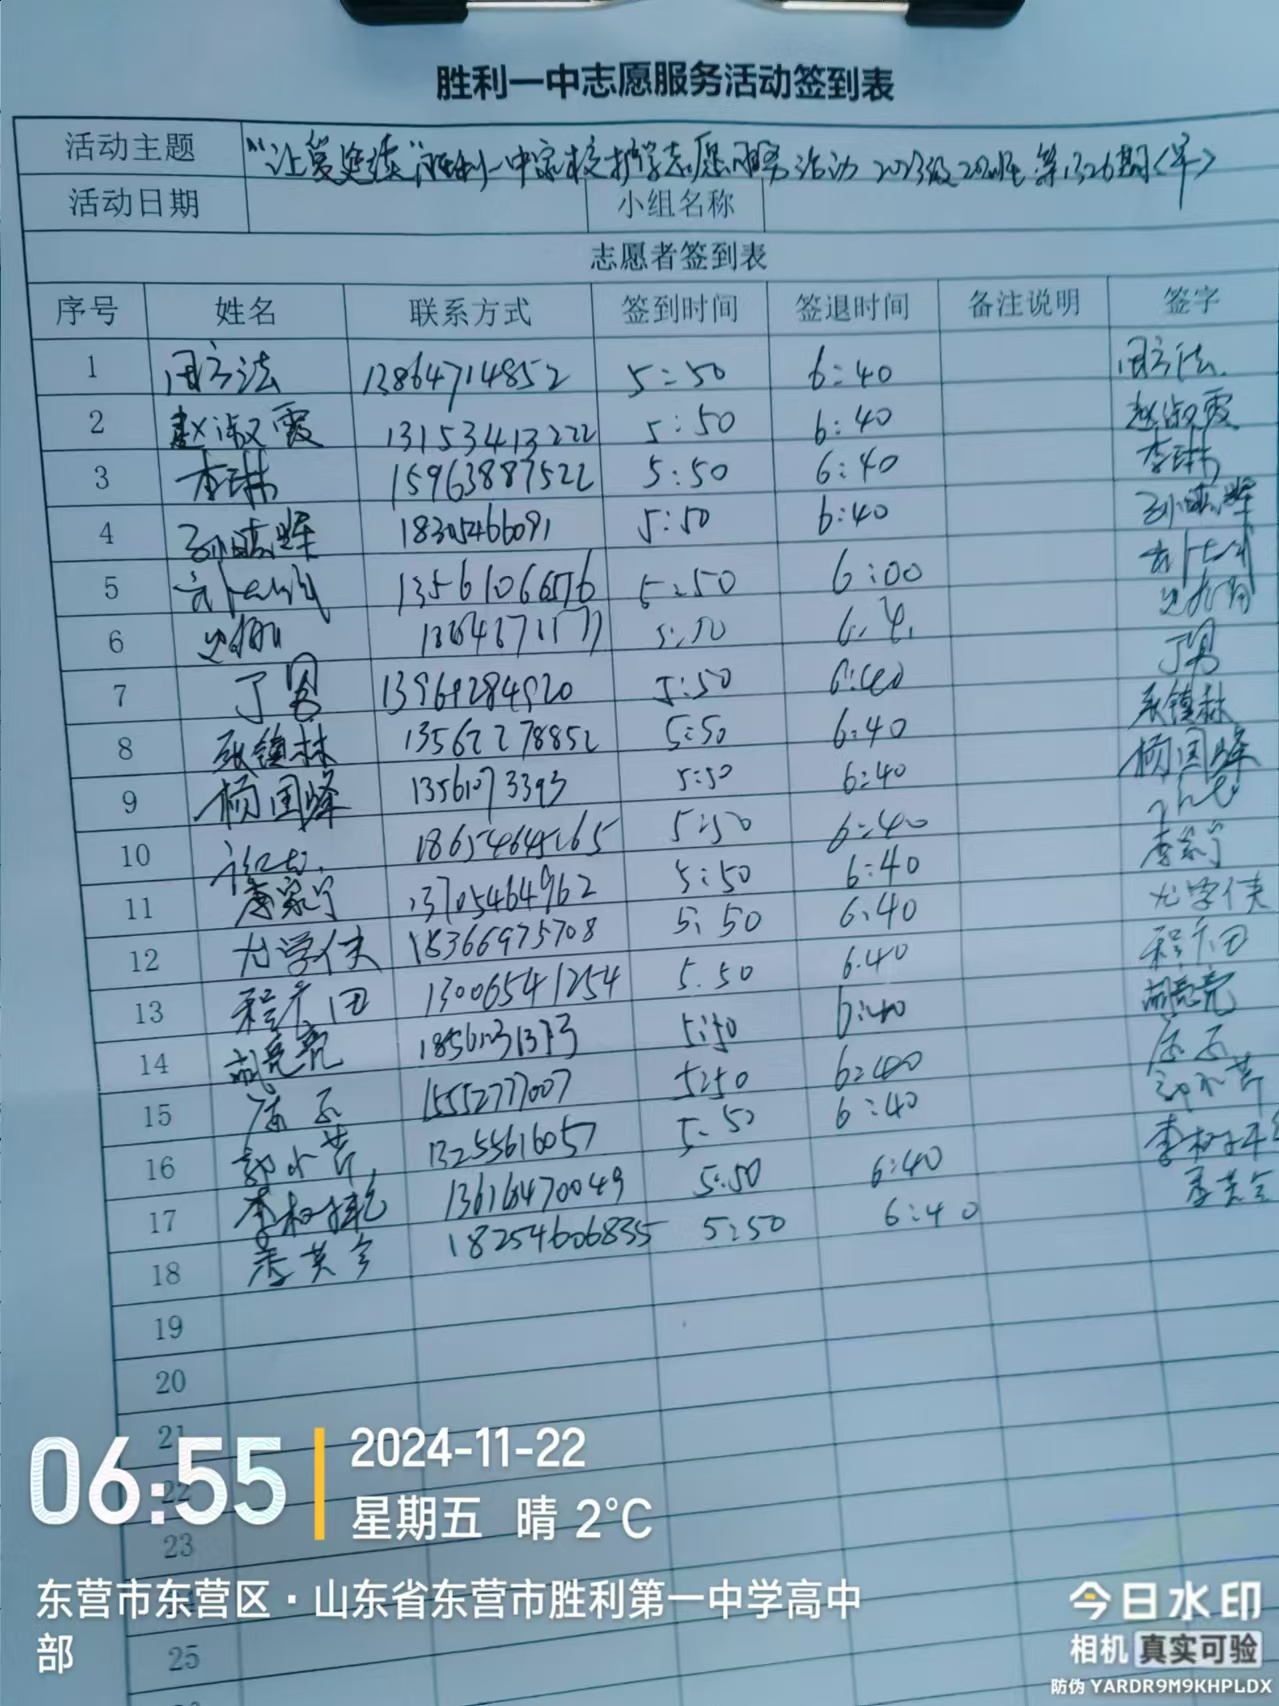 胜利一中志愿服务活动签到表
活动主题 "让爱延续"胜利一中家校护学志愿服务活动 2023级 班 第1326期(早)
活动日期 小组名称
志愿者签到表
序号 姓名 联系方式 签到时间 签退时间 备注说明 签字
1 周方法 13864714852 5:50 6:40 周方法
2 赵淑霞 13153413222 5:50 6:40 赵淑霞
3 李琳 15963887522 5:50 6:40 李琳
4 孙晓晖 18305466091 5:50 6:40 孙晓晖
5 13561066576 5:50 6:00
6
7 丁男 5:50 6:40 丁男
8 张镇林 13562278852 5:50 6:40 张镇林
9 杨国峰 5:50 6:40 杨国峰
10 5:50 6:40
11 李家宁 13705464962 5:50 6:40 李家宁
12 尤学侠 18366975708 5:50 6:40 尤学侠
13 程广田 13006541254 5.50 6.40 程广田
14 胡亮亮 5:50 6:40 胡亮亮
15 15552777007 5:50 6:40
16 郭小芹 13255616057 5:50 6:40 郭小芹
17 5:50 6:40
18 18254606835 5:50 6:40
19
20
21
22
23
25
06:55
2024-11-22
星期五 晴 2°C
东营市东营区·山东省东营市胜利第一中学高中
部
今日水印
相机 真实可验
防伪 YARDR9M9KHPLDX